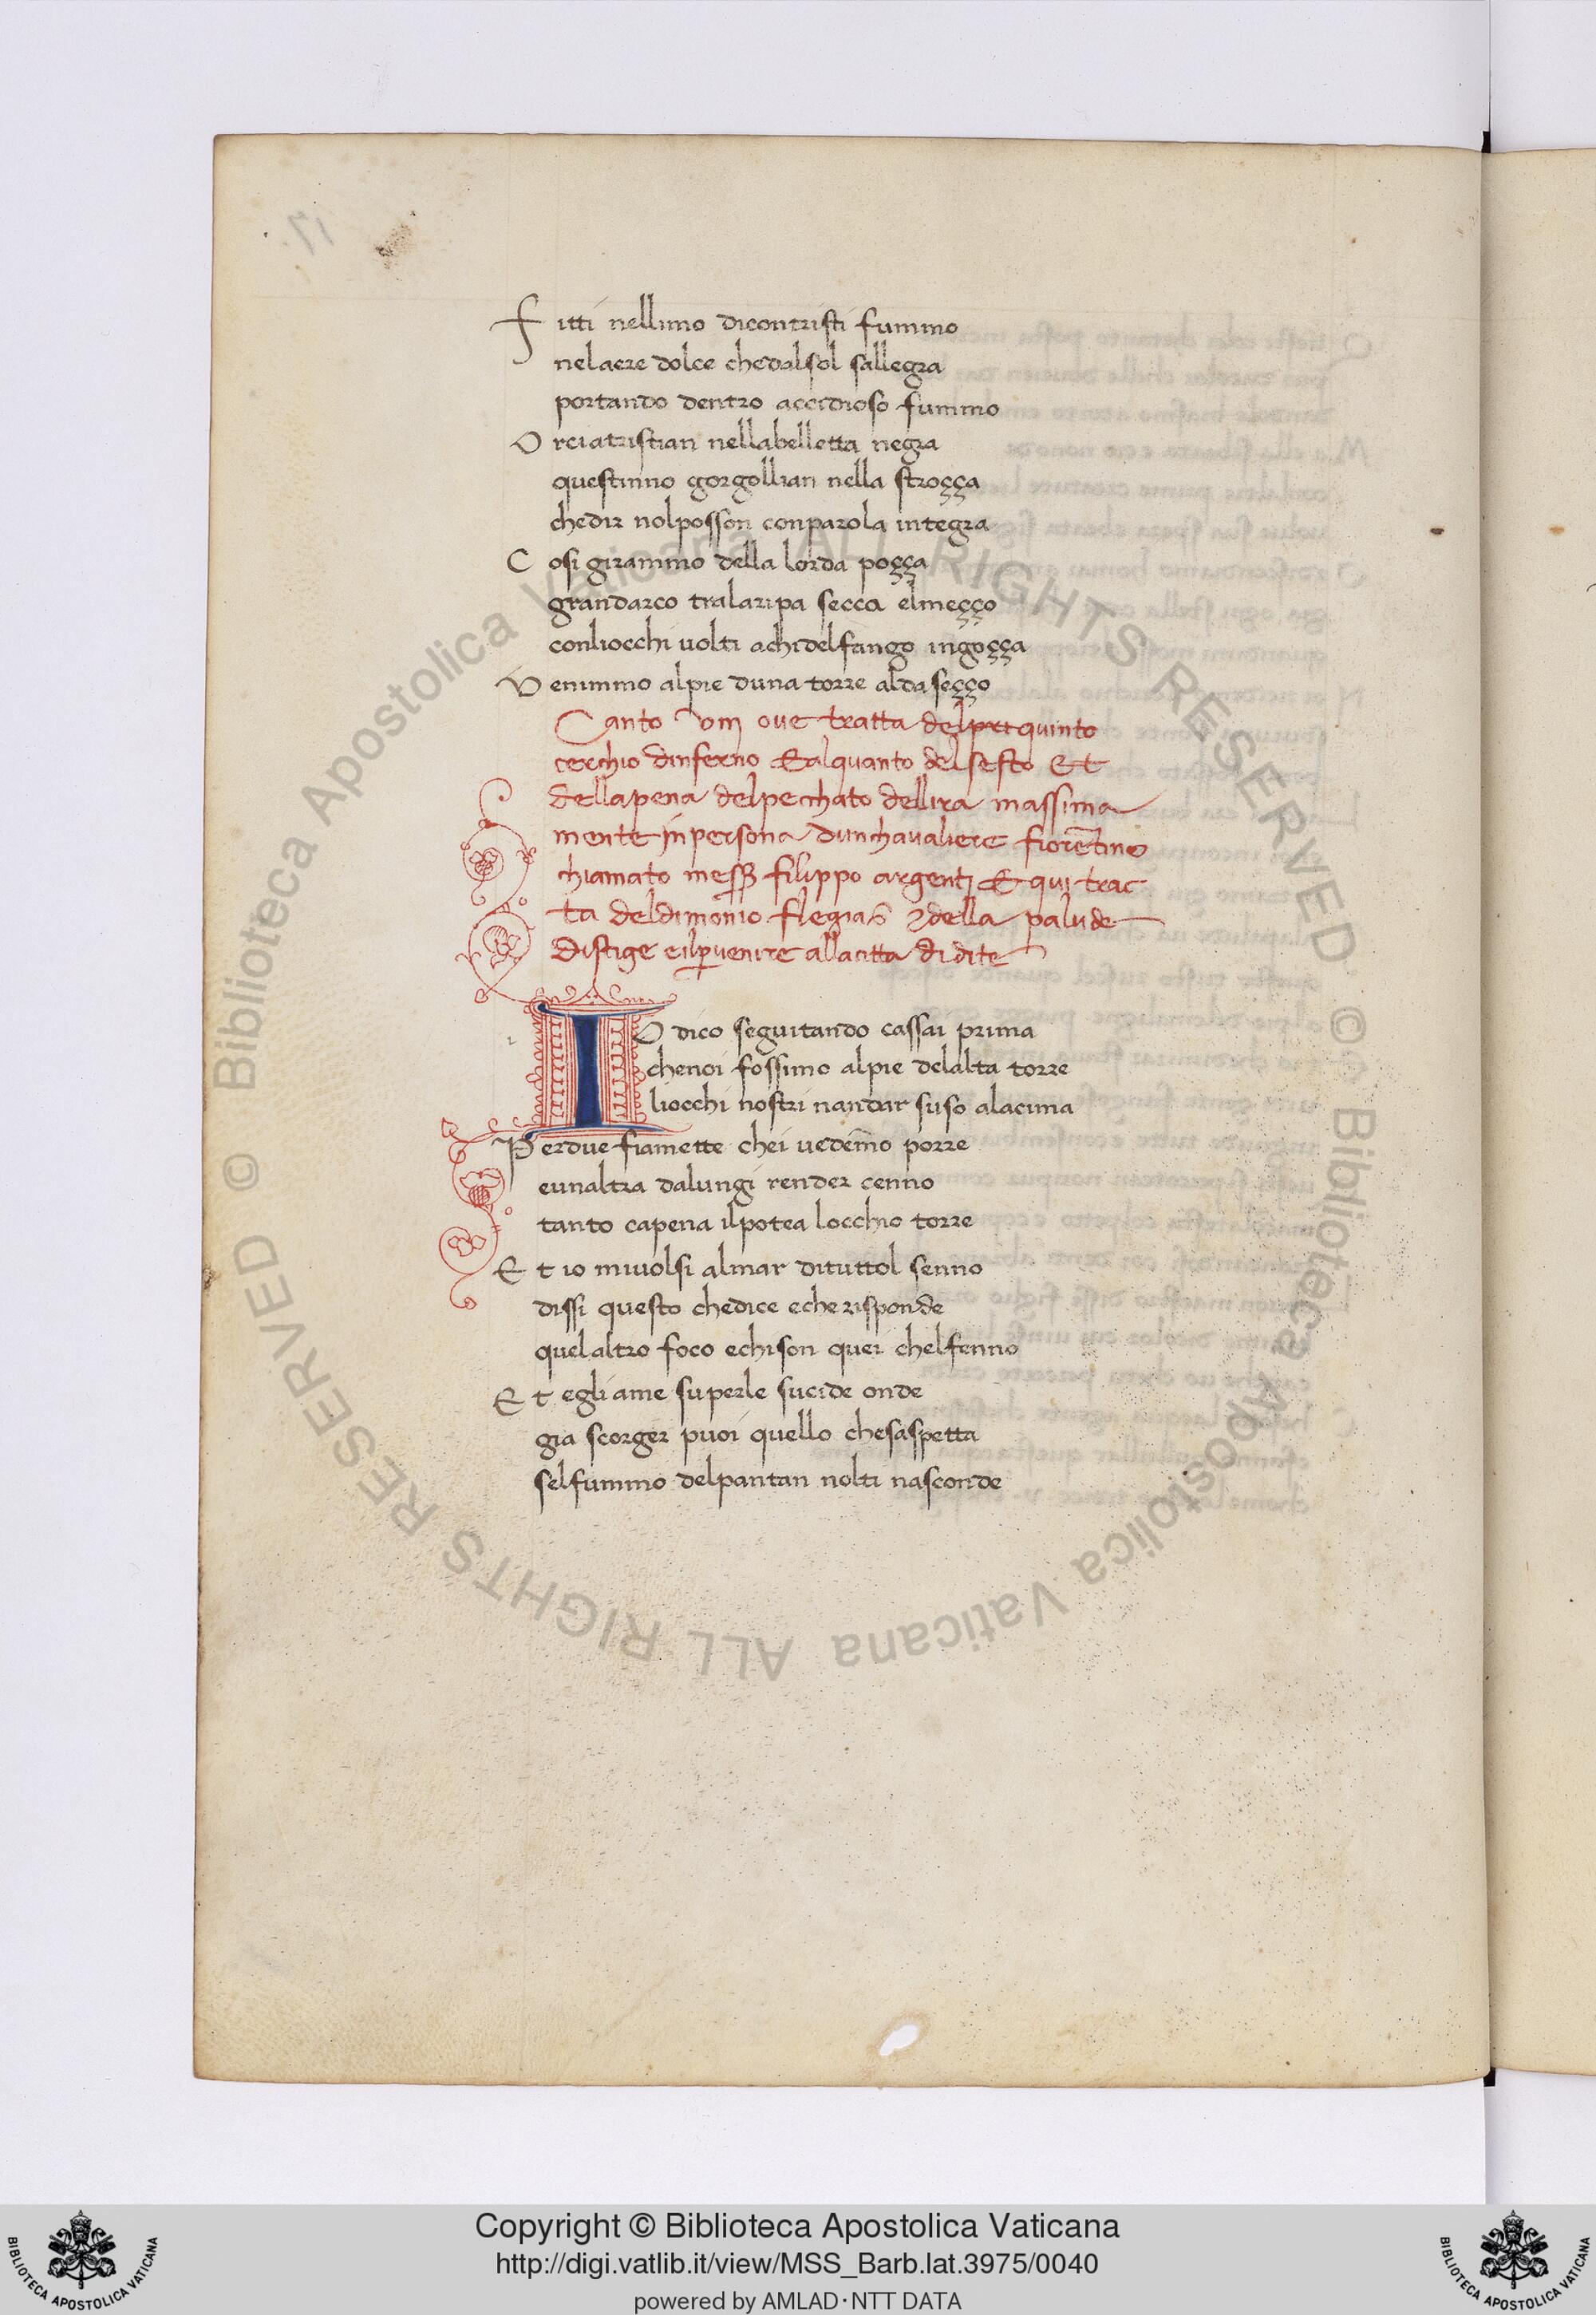 Fitti nellimo dicontristi fummo
nelaere dolce chedalsol sallegra
portando dentro accidioso fummo
Orciatristian nellabelletta negra
questinno gorgollian nella stroçça
chedir nolposson conparola integra
Cosi girammo della lorda poçça
grandarco tralaripa secca elmeçço
conliocchi uolti achidelfango ingoçça
Venimmo alpie duna torre aldaseçço
Canto viij ove tratta delpri quinto
cerchio dinferno Et alquanto del sesto Et
della pena delpecchato dellira massima
mente in persona dunchavaliere fiorẽtino
chiamato messer filippo argentj Et qui trac
ta deldimonio flegias ⁊ della palude
distige eilꝑuenire allacitta di dite
IO dico seguitando cassai prima
chenoi fossimo alpie delalta torre
liocchi nostri nandar suso alacima
Perdue fiamette chei uedem̃o porre
eunaltra dalungi render cenno
tanto capena ilpotea locchio torre
Et io miuolsi almar dituttol senno
dissi questo chedice eche risponde
quelaltro foco echison quei chelfenno
Et egli ame superle sucide onde
gia scorger puoi quello chesaspetta
selfummo delpantan nolti nasconde
© Biblioteca Apostolica Vaticana ALL RIGHTS RESERVED
© Biblioteca Apostolica Vaticana ALL RIGHTS RESERVED
Copyright © Biblioteca Apostolica Vaticana
http://digi.vatlib.it/view/MSS_Barb.lat.3975/0040
powered by AMLAD·NTT DATA
BIBLIOTECA APOSTOLICA VATICANA
BIBLIOTECA APOSTOLICA VATICANA